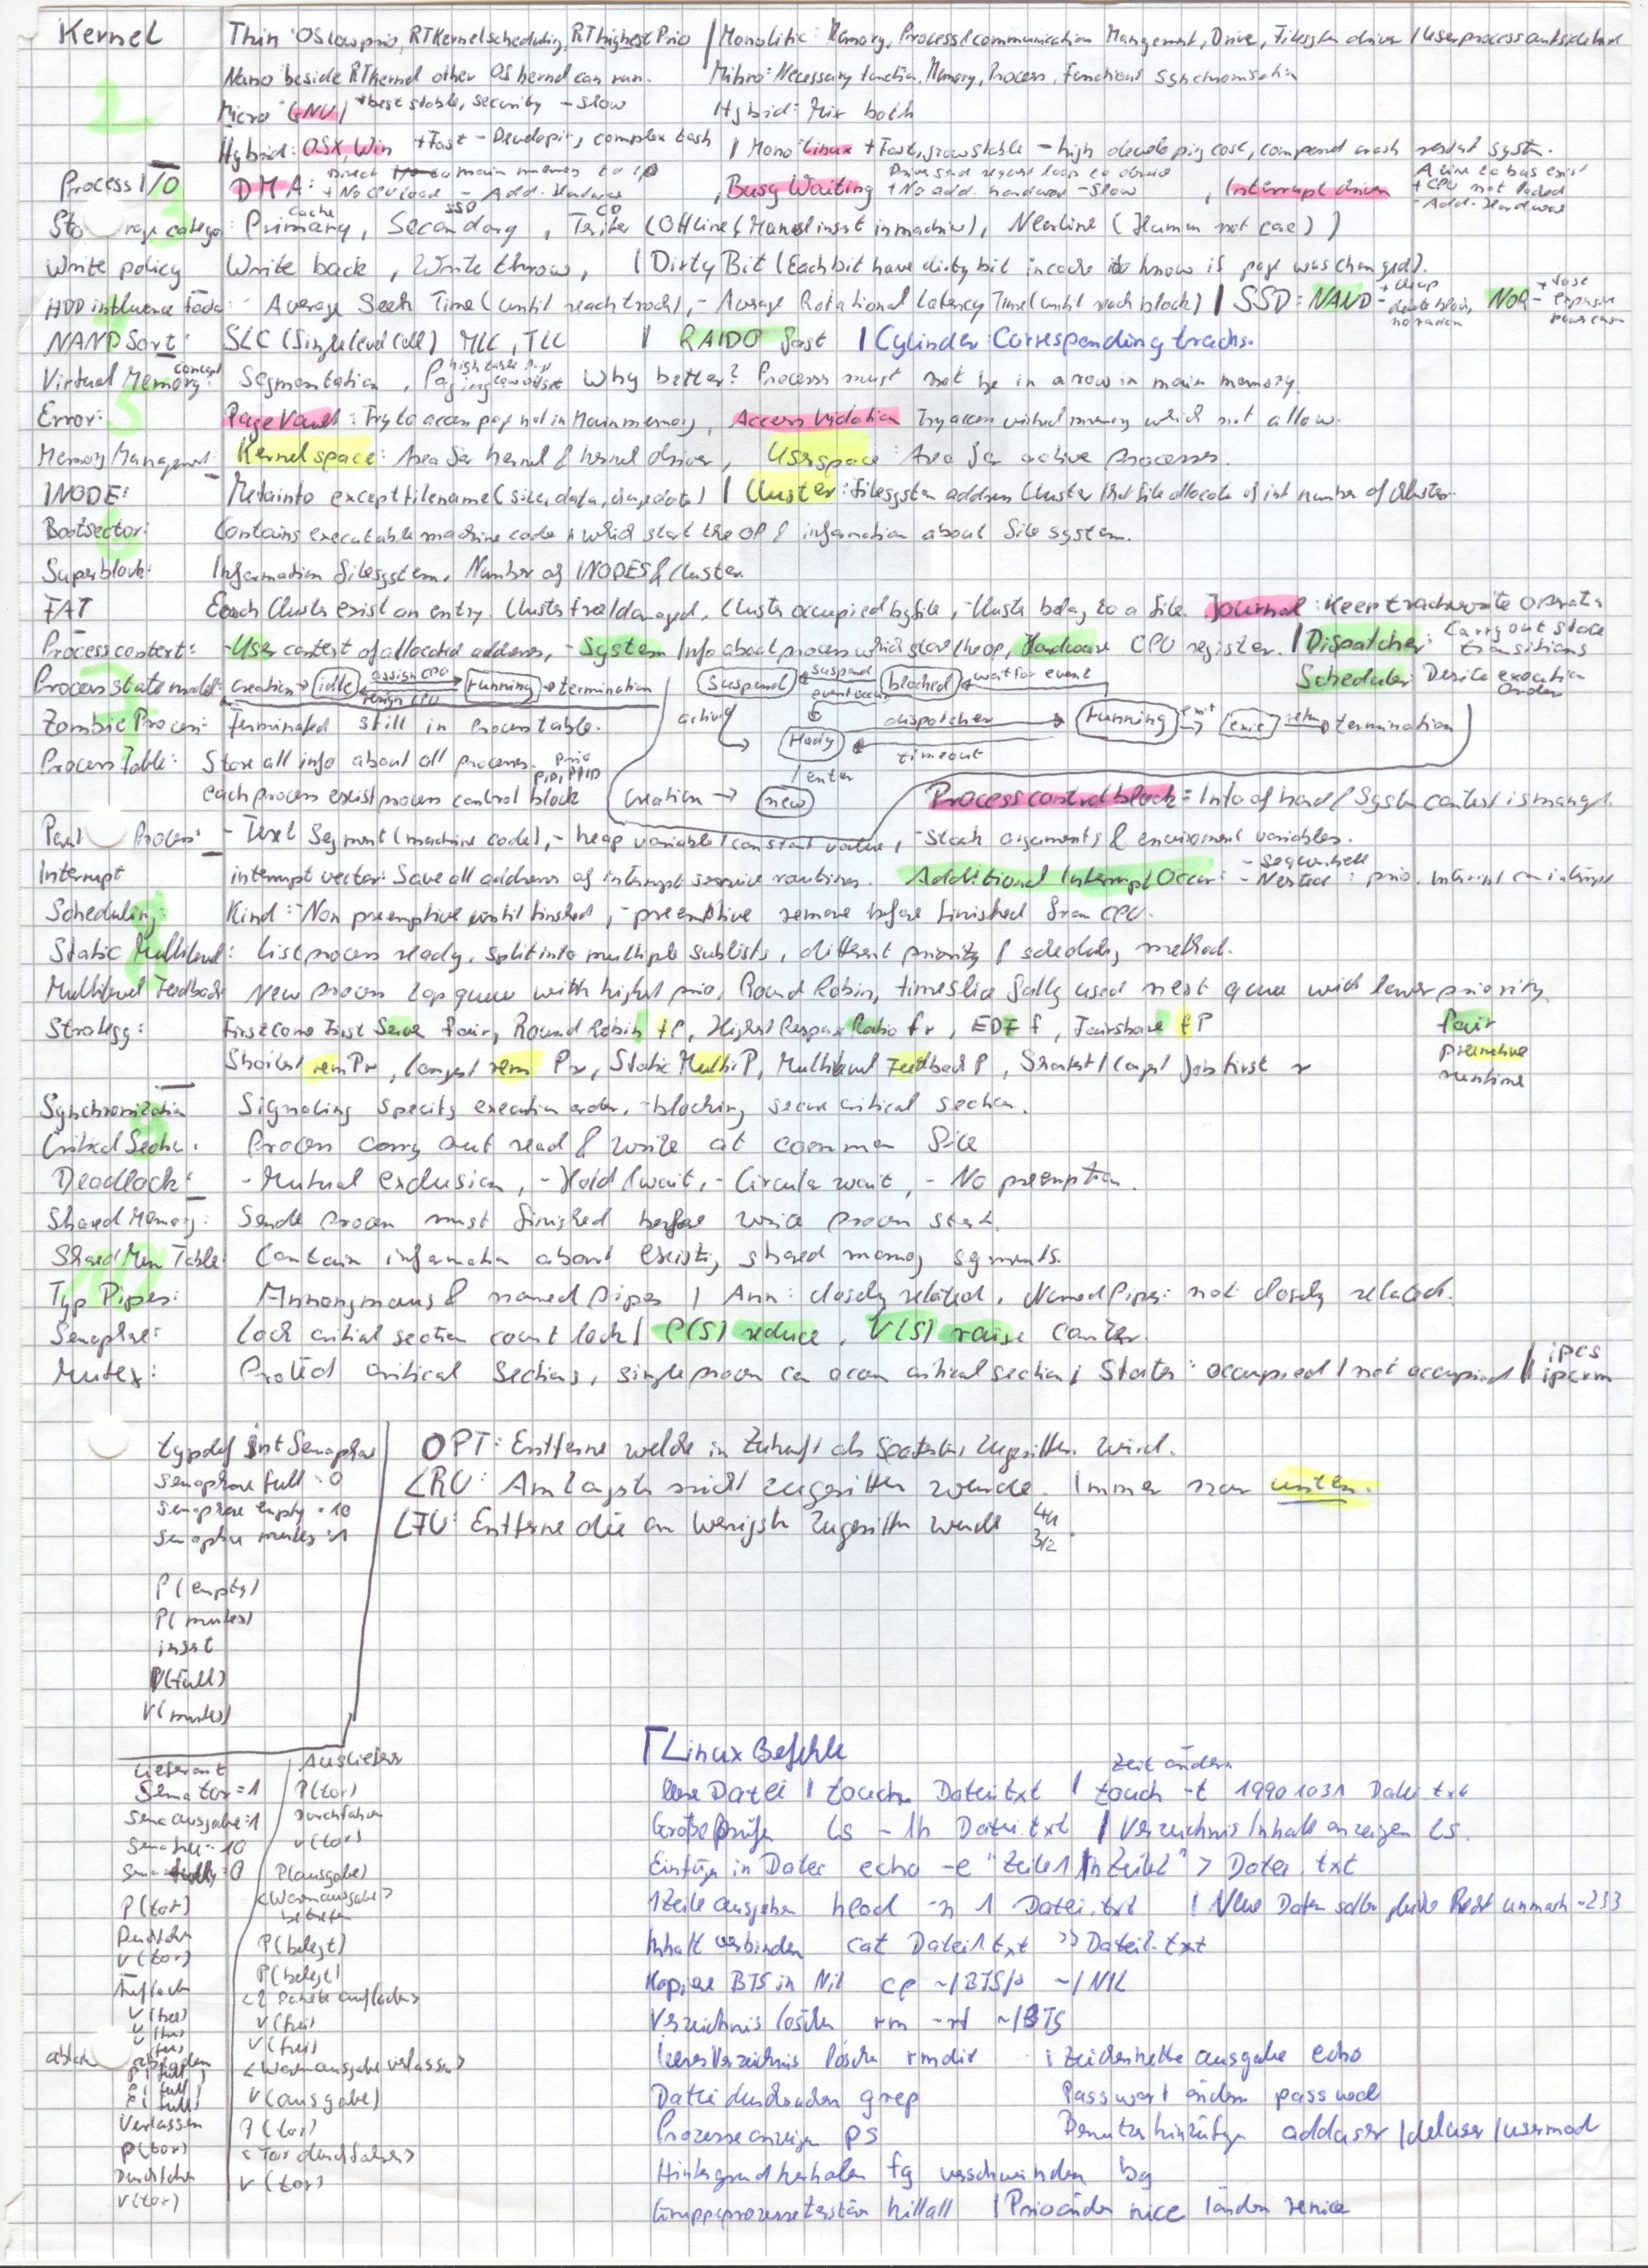 Kernel Thin OS low prio, RT Kernel scheduling, RT highest Prio | Monolitic: Memory, Process & communication Mangement, Drive, Filesystem driver / Userprocess outside
Nano beside RT kernel other OS kernel can run. Mikro: Necessary function, Memory, Process, Functions synchronisation
2
Micro (GNU) + best stable, security - slow Hybrid: Mix both
Hybrid: OSX, Win + Fast - Developing, complex | Mono: Linux + Fast, grow stable - high developing cost, component crash restart system.
Process I/O DMA: Direct main memory to I/O + No CPU load - Add. Hardware , Busy Waiting + No add. hardware - slow , Interrupt driven A line to bus exist + CPU not locked - Add. Hardware
3
Storage catego: Primary, Cache Secondary SSD , CD (Offline (Manual insert in machine), Nearline (Human not case))
Write policy Write back, Write throw, | Dirty Bit (Each bit have dirty bit in cache to know if page was changed).
HDD influence : - Average Seek Time (until reach track), - Average Rotational Latency Time (until reach block) | SSD: NAND + cheap - , NOR + -
4
NAND Sort: SLC (Single level Cell) MLC, TLC | RAID0 fast | Cylinder: Corresponding tracks.
Virtual Memory: concept Segmentation, Paging Why better? Process must not be in a row in main memory.
5
Error: Page Vault: Try to access page not in Main memory, Access Violation Try access virtual memory which not allow.
Memory Management: Kernel space: Area for kernel & kernel driver, Userspace: Area for active processes.
INODE: Metainfo except filename (size, data, ) | Cluster: Filesystem address Cluster number of cluster
6
Bootsector: Contains executable machine code which start the OP & information about file system.
Superblock: Information filesystem, Number of INODES & Cluster
FAT Each Cluster exist an entry. Cluster free/damaged, Cluster occupied by file, - Cluster belong to a file. Journal: Keep track write operats
Process context: - User context of allocated address, - System Info about process , Hardware CPU register. | Dispatcher: Carry out state transitions
Process state model: creation → idle assign CPU resign CPU running → termination suspend suspend event occur blocked wait for event Scheduler: Deside execution order
7
Zombie Process: terminated still in Process table. active ready dispatcher timeout running exit exit termination
Process Table: Store all info about all processes. Prio PID, PPID
each process exist process control block creation → new enter Process control block = Info of hard & System context is mang.
Process: - Text Segment (machine code), - heap variable / constant value, - Stack arguments & enviroment variables.
Interrupt interrupt vector: Save all address of interrupt service routines. Additional Interrupt Occur: - Sequentiell - Nested: prio. Interrupt can interrupt
Scheduling: Kind: - Non preemptive until finished, - preemptive remove before finished from CPU.
8
Static Multilevel: List process ready, split into multiple sublists, different priority / scheduling method.
Multilevel Feedback New process top queue with highest prio, Round Robin, timeslice fully used next queue with lower priority.
Strategy: First come First Serve Fair, Round Robin fP, Highest Response Ratio fr, EDF f, Fairshare fP Fair
Shortest rem Pr, longest rem Pr, Static Multi P, Multilevel Feedback P, Shortest / longest Job first r preemtive
runtime
9
Synchronization Signaling specify execution order, - blocking secure critical section.
Critical Sectio: Process carry out read & write at common file
Deadlock: - Mutual exclusion, - Hold & wait, - Circular wait, - No preemption.
Shared Memory: Sende process must finished before write process start.
Shared Mem Table: Contain information about existing shared memory segments.
10
Typ Pipes: Annonymous & named pipes | Ann: closely related, Named Pipes: not closely related.
Semaphore: Lock critial section count lock | P(S) reduce, V(S) raise Counter.
Mutex: Protect critical Sections, single process can access critical section | States: occupied / not occupied || ipcs
ipcrm
typdef int Semaphor OPT: Entferne welche in Zukunft als Spätestes Zugegriffen wird.
semaphore full = 0 LRU: Am längsten nicht zugegriffen wurde. Immer nur unten.
semaphore empty = 10
semaphore mutex = 1 LFU: Entferne die am Wenigsten Zugegriffen wurde 4/1
3/2
P(empty)
P(mutex)
insert
V(full)
V(mutex)
Lieferant Ausliefern
Sema tor = 1 P(tor)
Sema ausgabe = 1 Durchfahren
Sema frei = 10 V(tor)
Sema = 0 P(ausgabe)
P(tor) <Warenausgabe betreten>
Durchfahren P(belegt)
V(tor) P(belegt)
Aufladen <2 Pakete aufladen>
V(frei) V(frei)
V(frei)
V(frei) V(frei)
abladen <Warenausgabe verlassen>
P(full)
P(full) V(ausgabe)
P(full)
Verlassen P(tor)
P(tor) <Tor durchfahren>
Durchfahren V(tor)
V(tor)
Linux Befehle
Zeit ändern
leere Datei | touch Datei.txt | touch -t 19901031 Datei.txt
Größe prüfen ls -lh Datei.txt | Verzeichnis Inhalt anzeigen ls.
Einfügen in Datei echo -e "Zeile1\nZeile2" > Datei.txt
1 Zeile ausgeben head -n 1 Datei.txt | Neue Datein sollen gleiche Recht unmask -233
Inhalt verbinden cat Datei1.txt >> Datei2.txt
Kopiere BTS in Nil cp ~/BTS/* ~/NIL
Verzeichnis löschen rm -rf ~/BTS
leeres Verzeichnis lösche rmdir | Zeichenkette ausgabe echo
Datei durchsuchen grep Passwort ändern passwd
Prozesse anzeigen ps Benutzer hinzufügen adduser / deluser / usermod
Hintergrund herholen fg verschwinden bg
Gruppeprozesse killall | Prio ändern nice | ändern renice